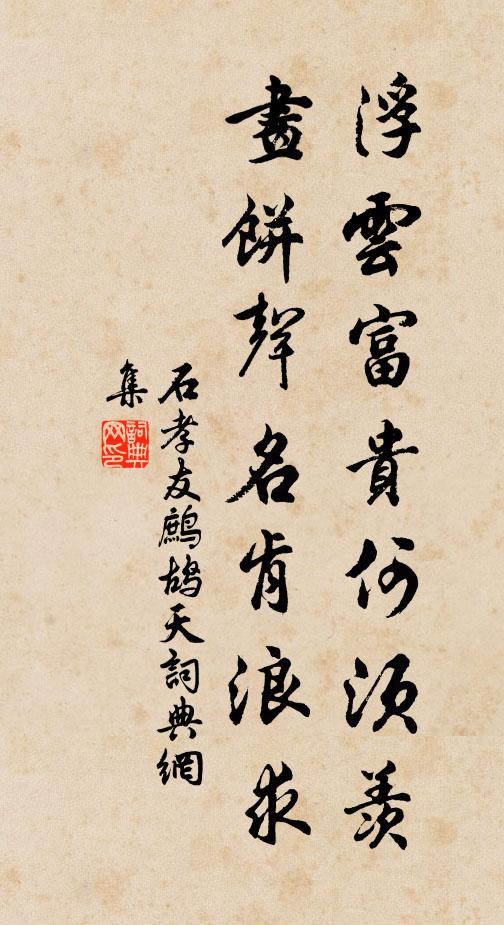 浮雲富貴何須羨
畫餅聲名肯浪求
石孝友鷓鴣天詞典網
集
詞典網印